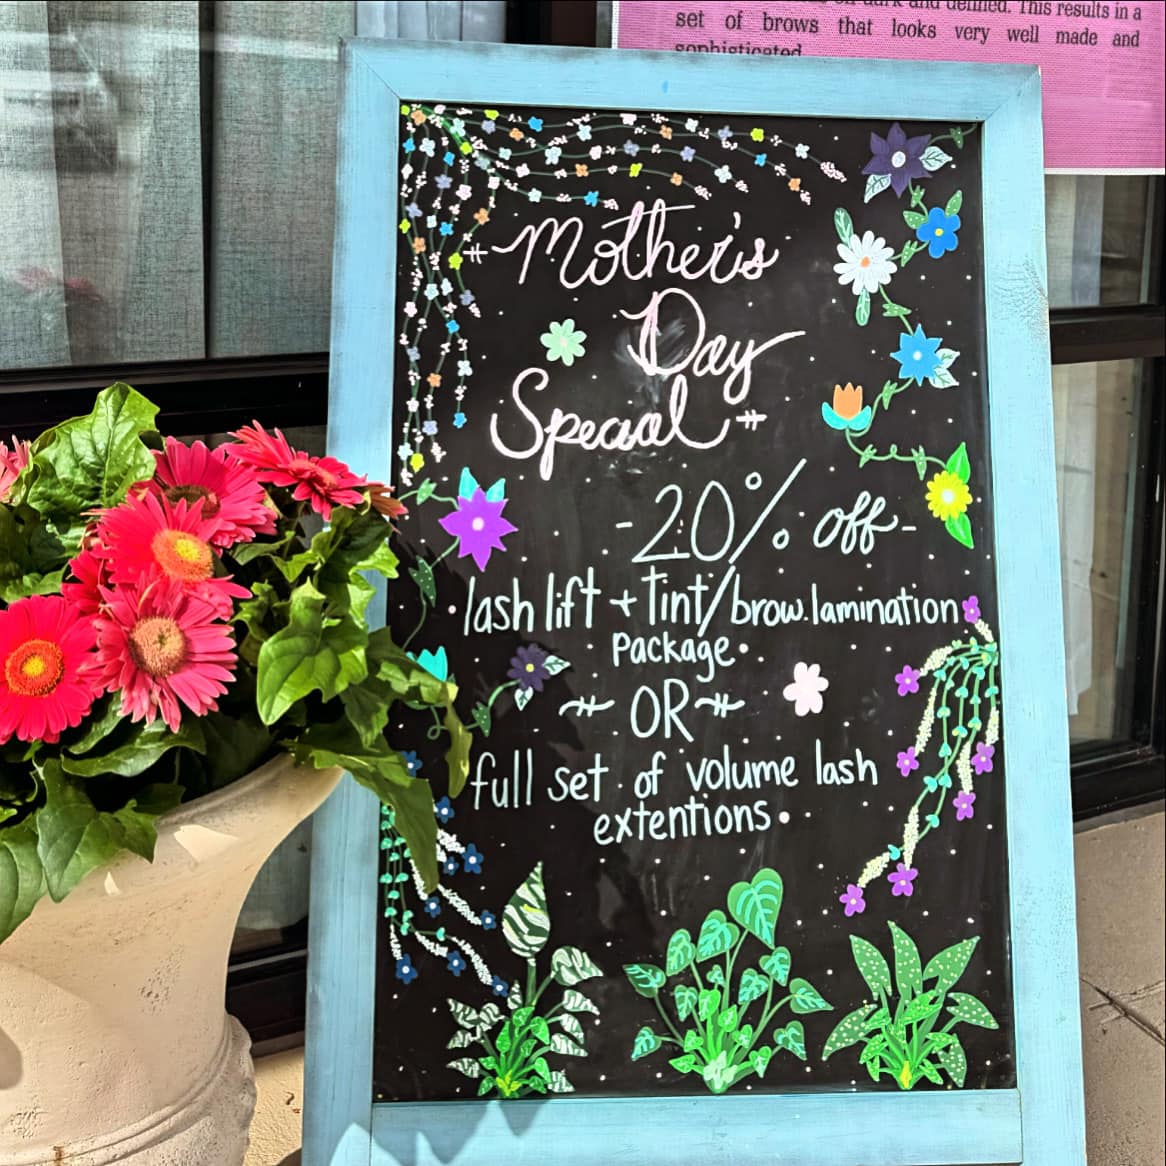 dark and defined. This results in a
set of brows that looks very well made and
sophisticated
Mother's
Day
Special
-20% off-
lash lift + Tint/brow.lamination
package.
OR
full set of volume lash
extentions.